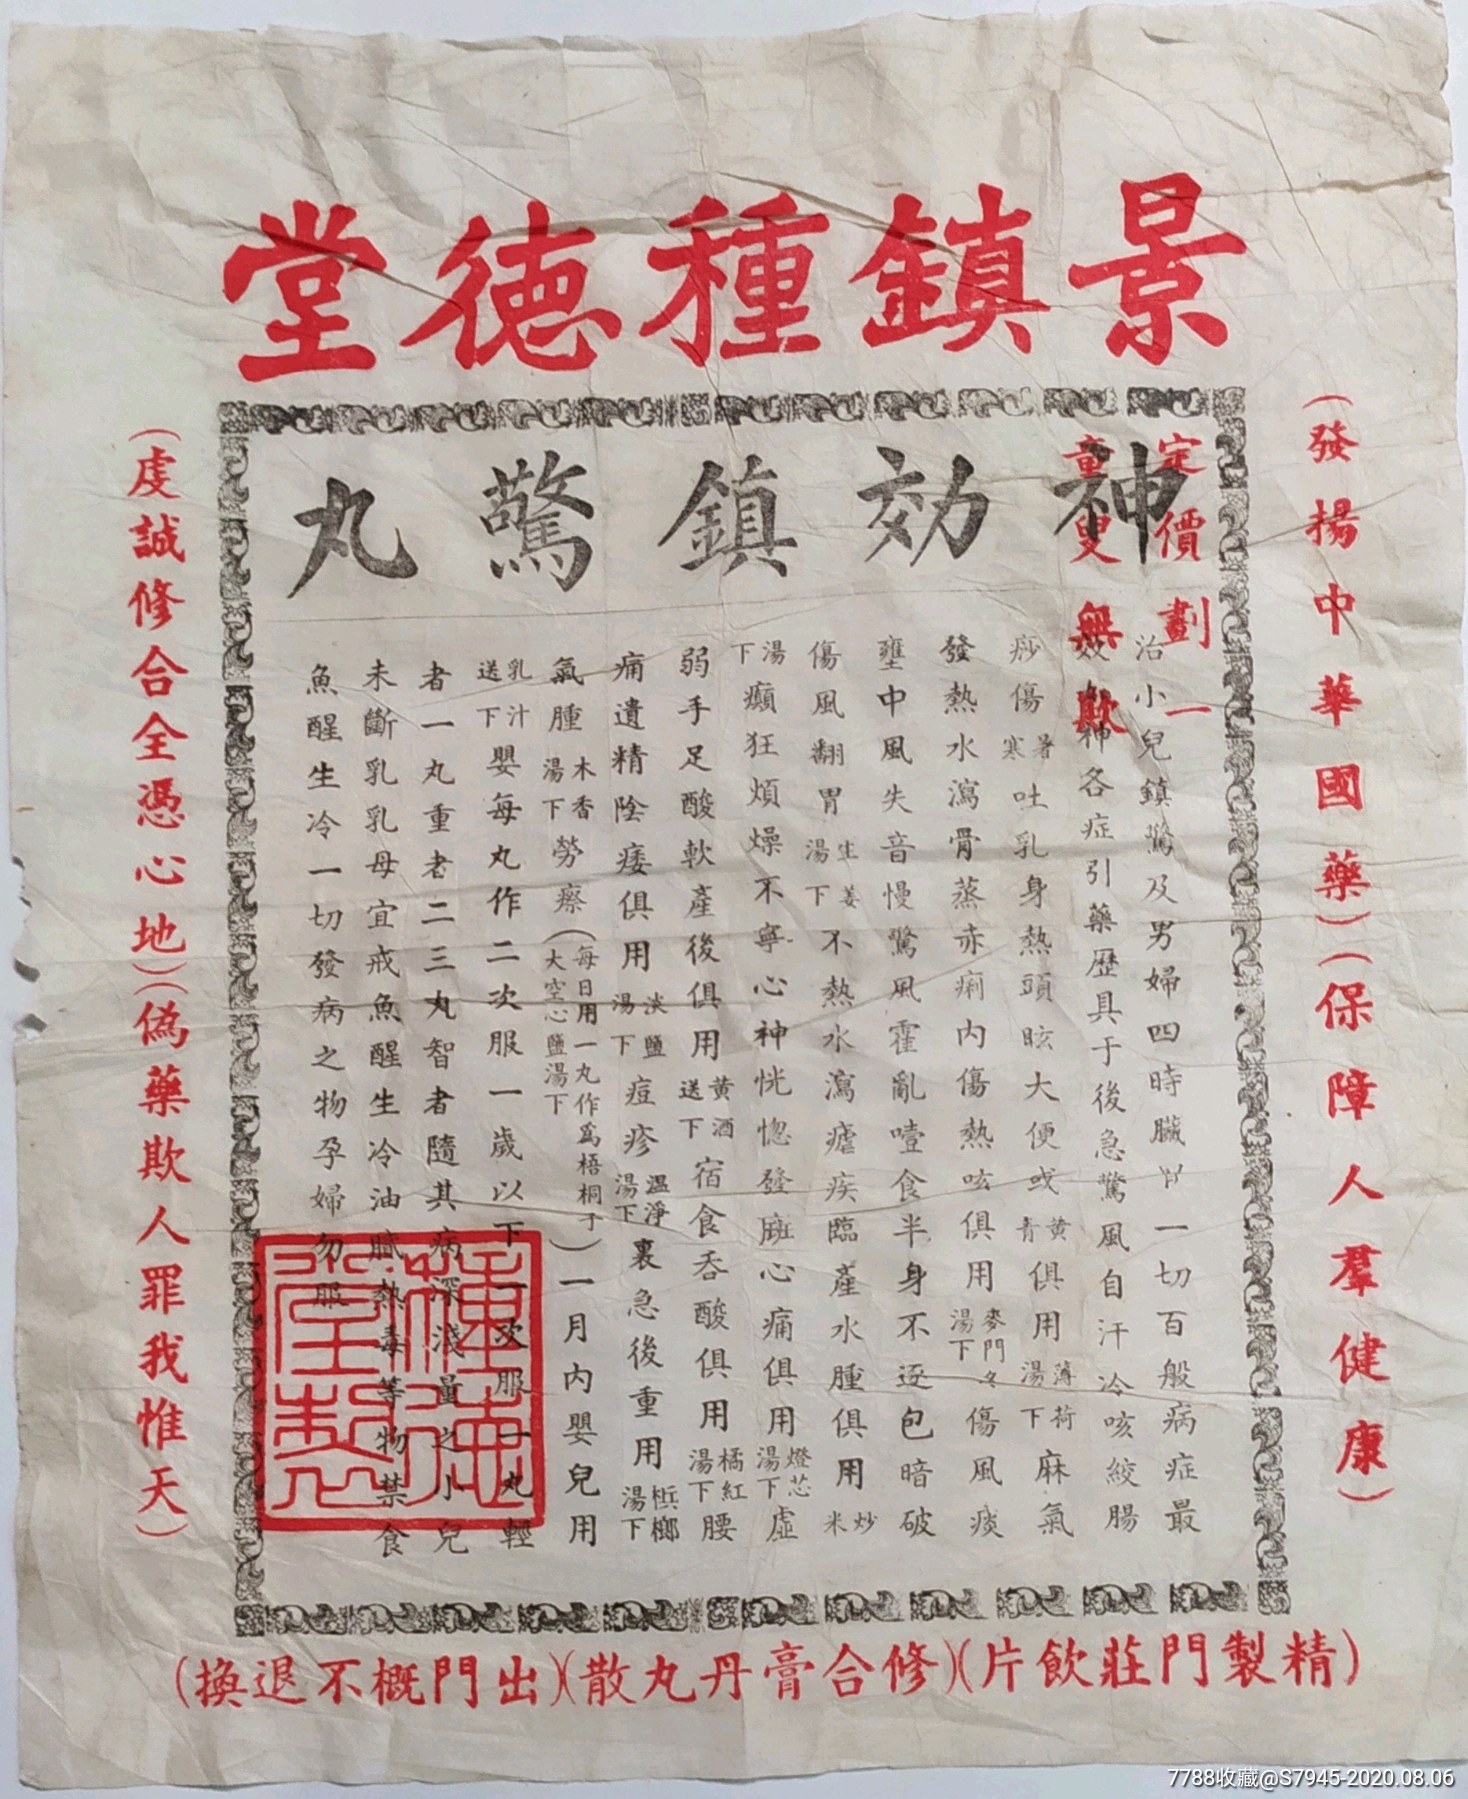 景鎮種德堂
神効鎮驚丸
定價劃一
童叟無欺
(發揚中華國藥)(保障人羣健康)
治小兒鎮驚及男婦四時臟
一切百般病症最
神各症引藥歷具于後急驚風自汗冷咳絞腸
痧傷寒暑吐乳身熱頭眩大便或青黄俱用薄荷湯下麻氣
發熱水瀉骨蒸赤痢内傷熱咳俱用麥門冬湯下傷風痰
壅中風失音慢驚風霍亂噎食半身不逐包暗破
傷風翻胃生姜湯下不熱水瀉瘧疾臨產水腫俱用炒米
湯下癲狂煩燥不寧心神恍惚發斑心痛俱用燈芯湯下虛
弱手足酸軟產後俱用黄酒送下宿食吞酸俱用橘紅湯下腰
痛遺精陰痿俱用淡鹽湯下痘疹溫淨湯下裏急後重用梹榔湯下
氣腫木香湯下勞瘵(每日用一丸作爲梧桐子大空心鹽湯下)一月内嬰兒用
乳汁送下嬰每丸作二次服一歲以下一次服一丸輕
者一丸重者二三丸智者隨其病深淺量之小兒
未斷乳乳母宜戒魚醒生冷油膩熱毒等物禁食
魚醒生冷一切發病之物孕婦勿服
種德堂製
(虔誠修合全憑心地)(偽藥欺人罪我惟天)
(精製門莊飲片)(修合膏丹丸散)(出門概不退換)
7788收藏@S7945-2020.08.06